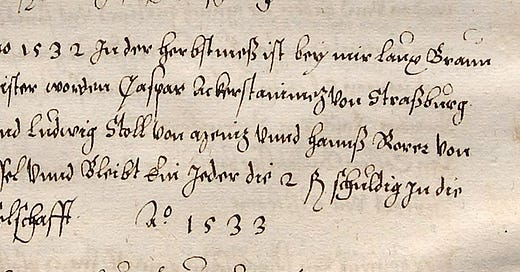 1532 In der herbstmeß ist bey mir Laux Braun
ister worden Caspar Ackerstaimmetz von Straßburg
nd Ludwig Stoll von Menitz vnnd hannß Rorer von
sel vnnd Bleibt Ein Jeder die 2 ß schuldig In die
elschafft Aº 1533